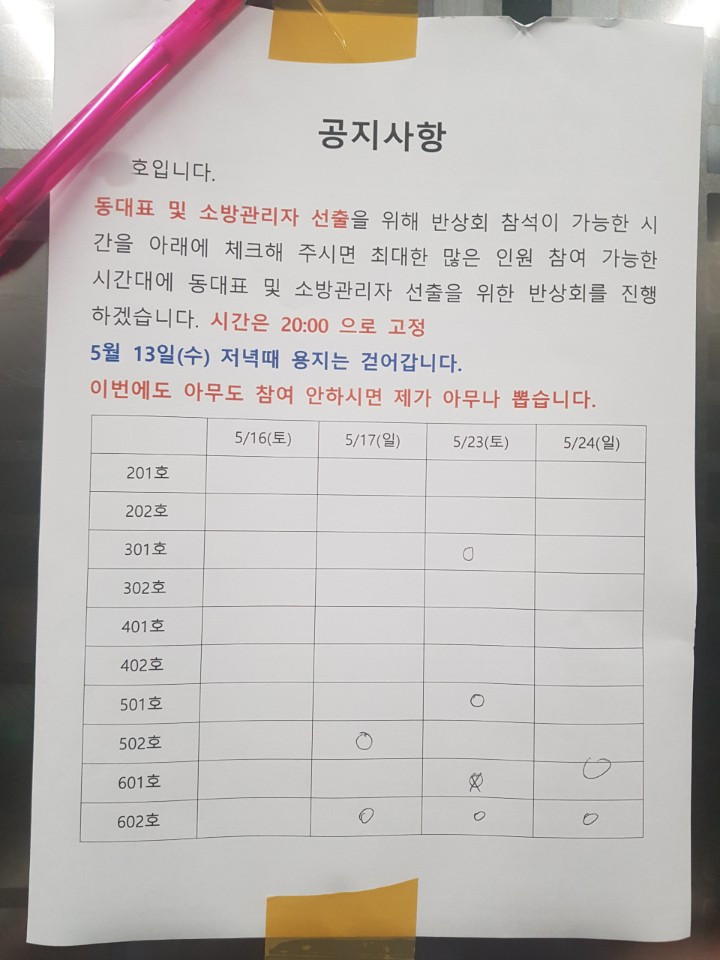 공지사항
호입니다.
동대표 및 소방관리자 선출을 위해 반상회 참석이 가능한 시
간을 아래에 체크해 주시면 최대한 많은 인원 참여 가능한
시간대에 동대표 및 소방관리자 선출을 위한 반상회를 진행
하겠습니다. 시간은 20:00 으로 고정
5월 13일(수) 저녁때 용지는 걷어갑니다.
이번에도 아무도 참여 안하시면 제가 아무나 뽑습니다.
5/16(토) 5/17(일) 5/23(토) 5/24(일)
201호
202호
301호
302호
401호
402호
501호
502호
601호
602호